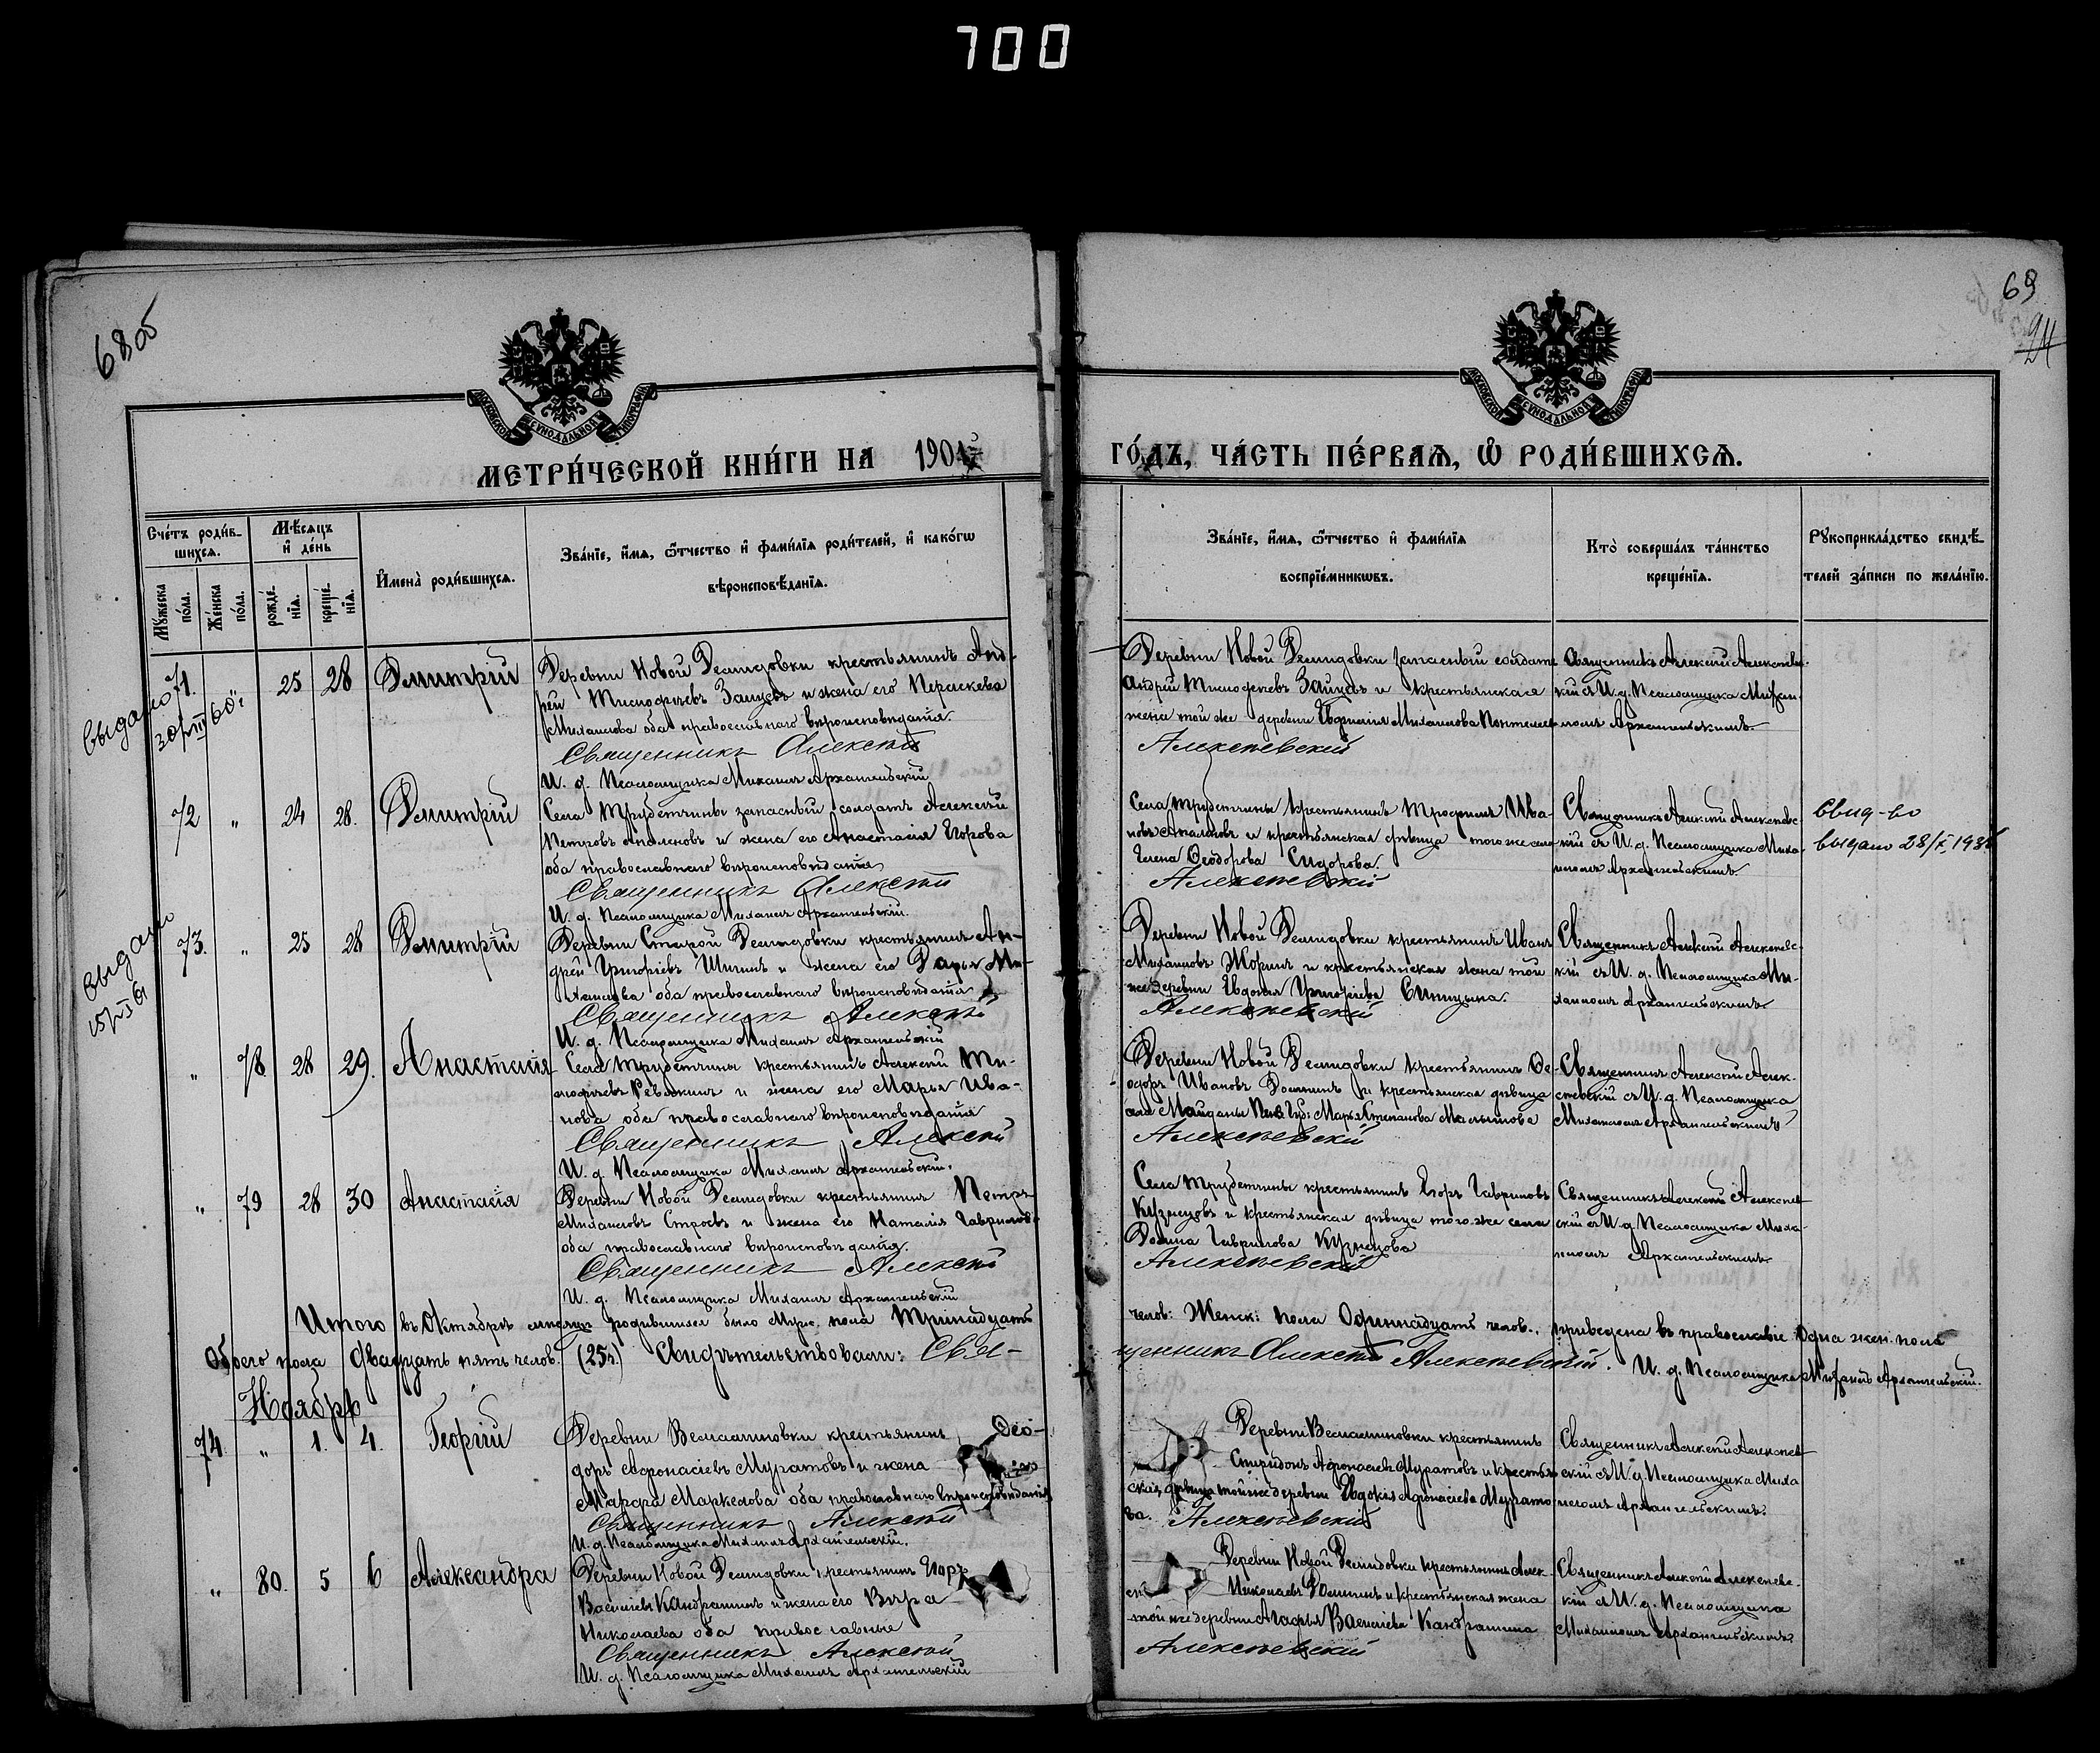 700
68об
69
24
МОСКОВСКОЙ СУНОДАЛЬНОЙ ТИПОГРАФІИ
МОСКОВСКОЙ СУНОДАЛЬНОЙ ТИПОГРАФІИ
МЕТРИ́ЧЕСКОЙ КНИ́ГИ НА 190
ГО́ДЪ, ЧА́СТЬ ПЕ́РВАѦ, Ѡ РОДИ́ВШИХСѦ.
Сче́тъ роди́в-
шихсѧ.
Мꙋ́жеска по́ла.
Же́нска по́ла.
Мѣ́сѧцъ
и҆ де́нь
рожде́-
нїѧ.
креще́-
нїѧ.
И҆мена̀ роди́вшихсѧ.
Зва́нїе, и҆́мѧ, ѻ҆́тчество и҆ фами́лїѧ роди́телей, и҆ како́гѡ
вѣроисповѣ́данїѧ.
Зва́нїе, и҆́мѧ, ѻ҆́тчество и҆ фами́лїѧ
воспрїе́мникѡвъ.
Кто̀ соверша́лъ та́инство
креще́нїѧ.
Рꙋкоприкла́дство свидѣ́-
телей за́писи по жела́нїю.
выдано
71. " 25 28 Димитрій
Деревни Новой Демидовки крестьянинъ Анд-
рей Тимофѣевъ Зайцевъ и жена его Параскева
Михаилова оба православнаго вѣроисповѣданія.
Священникъ Алексѣй
И. д. Псаломщика Михаилъ Архангельскій
Деревни Новой Демидовки запасный солдатъ
Андрей Тимофѣевъ Зайцевъ и крестьянская
жена той же деревни Евдокія Михаилова
Алексѣевскій
Священникъ Алексѣй Алексѣевс-
кій съ И. д. Псаломщика Михаи-
ломъ Архангельскимъ.
72 " 24 28. Димитрій
Села Трубетчины запасный солдатъ Алексѣй
Петровъ и жена его Анастасія Егорова
оба православнаго вѣроисповѣданія
Священникъ Алексѣй
И. д. Псаломщика Михаилъ Архангельскій.
Села Трубетчины крестьянинъ Трофимъ Ива-
новъ и крестьянская дѣвица того же села
Елена Ѳеодорова Сидорова.
Алексѣевскій
Священникъ Алексѣй Алексѣевс-
кій съ И. д. Псаломщика Миха-
иломъ Архангельскимъ.
Свид-во
выдано 28/X 193
выдан
73. " 25 28 Димитрій
Деревни Старой Демидовки крестьянинъ Ан-
дрей Григорьевъ Шигинъ и жена его Дарья Ми-
хаилова оба православнаго вѣроисповѣданія
Священникъ Алексѣй
И. д. Псаломщика Михаилъ Архангельскій
Деревни Новой Демидовки крестьянинъ Иванъ
Михаиловъ Жоринъ и крестьянская жена той
же деревни Евдокія Григорьева Синицына.
Алексѣевскій
Священникъ Алексѣй Алексѣевс-
кій съ И. д. Псаломщика Ми-
хаиломъ Архангельскимъ
" 78 28 29. Анастасія
Села Трубетчины крестьянинъ Алексѣй Ти-
мофѣевъ Ревякинъ и жена его Марья Ива-
нова оба православнаго вѣроисповѣданія
Священникъ Алексѣй
И. д. Псаломщика Михаилъ Архангельскій.
Деревни Новой Демидовки крестьянинъ Ѳе-
одоръ Ивановъ Фоминъ и крестьянская дѣвица
села Майданы Марья Степанова
Алексѣевскій
Священникъ Алексѣй Алек-
сѣевскій съ И. д. Псаломщика
Михаиломъ Архангельскимъ
" 79 28 30 Анастасія
Деревни Новой Демидовки крестьянинъ Петръ
Михаиловъ Строевъ и жена его Наталія Гаврилова
оба православнаго вѣроисповѣданія.
Священникъ Алексѣй
И. д. Псаломщика Михаилъ Архангельскій
Села Трубетчины крестьянинъ Егоръ Гавриловъ
Кузнецовъ и крестьянская дѣвица того же села
Домна Гаврилова Кузнецова
Алексѣевскій
Священникъ Алексѣй Алексѣев-
скій съ И. д. Псаломщика Миха-
иломъ Архангельскимъ
Итого въ Октябрѣ мѣсяцѣ родившихся было муж. пола Тринадцать
челов: Женск: пола Одиннадцать челов., приведена въ православіе Одна жен. пола
Обоего пола двадцать пять челов. (25 ч.) Свидѣтельствовали: Свя-
щенникъ Алексѣй Алексѣевскій. И. д. Псаломщика Михаилъ Архангельскій.
Ноябрь
74 " 1. 4. Георгій
Деревни Веніаминовки крестьянинъ Ѳео-
доръ Афонасіевъ Муратовъ и жена его
Марфа Маркелова оба православнаго вѣроисповѣданія
Священникъ Алексѣй
И. д. Псаломщика Михаилъ Архангельскій.
Деревни Веніаминовки крестьянинъ
Спиридонъ Афонасьевъ Муратовъ и крестьян-
ская дѣвица той же деревни Евдокія Афонасіева Мурато-
ва. Алексѣевскій
Священникъ Алексѣй Алексѣев-
скій съ И. д. Псаломщика Миха-
иломъ Архангельскимъ.
" 80. 5 6 Александра
Деревни Новой Демидовки крестьянинъ Егоръ
Васильевъ Кандрашинъ и жена его Вѣра
Николаева оба православные
Священникъ Алексѣй
И. д. Псаломщика Михаилъ Архангельскій
Деревни Новой Демидовки крестьянинъ Алек-
сѣй Николаевъ Фоминъ и крестьянская жена
той же деревни Агафья Васильева Кандрашина
Алексѣевскій
Священникъ Алексѣй Алексѣевс-
кій съ И. д. Псаломщика
Михаиломъ Архангельскимъ.